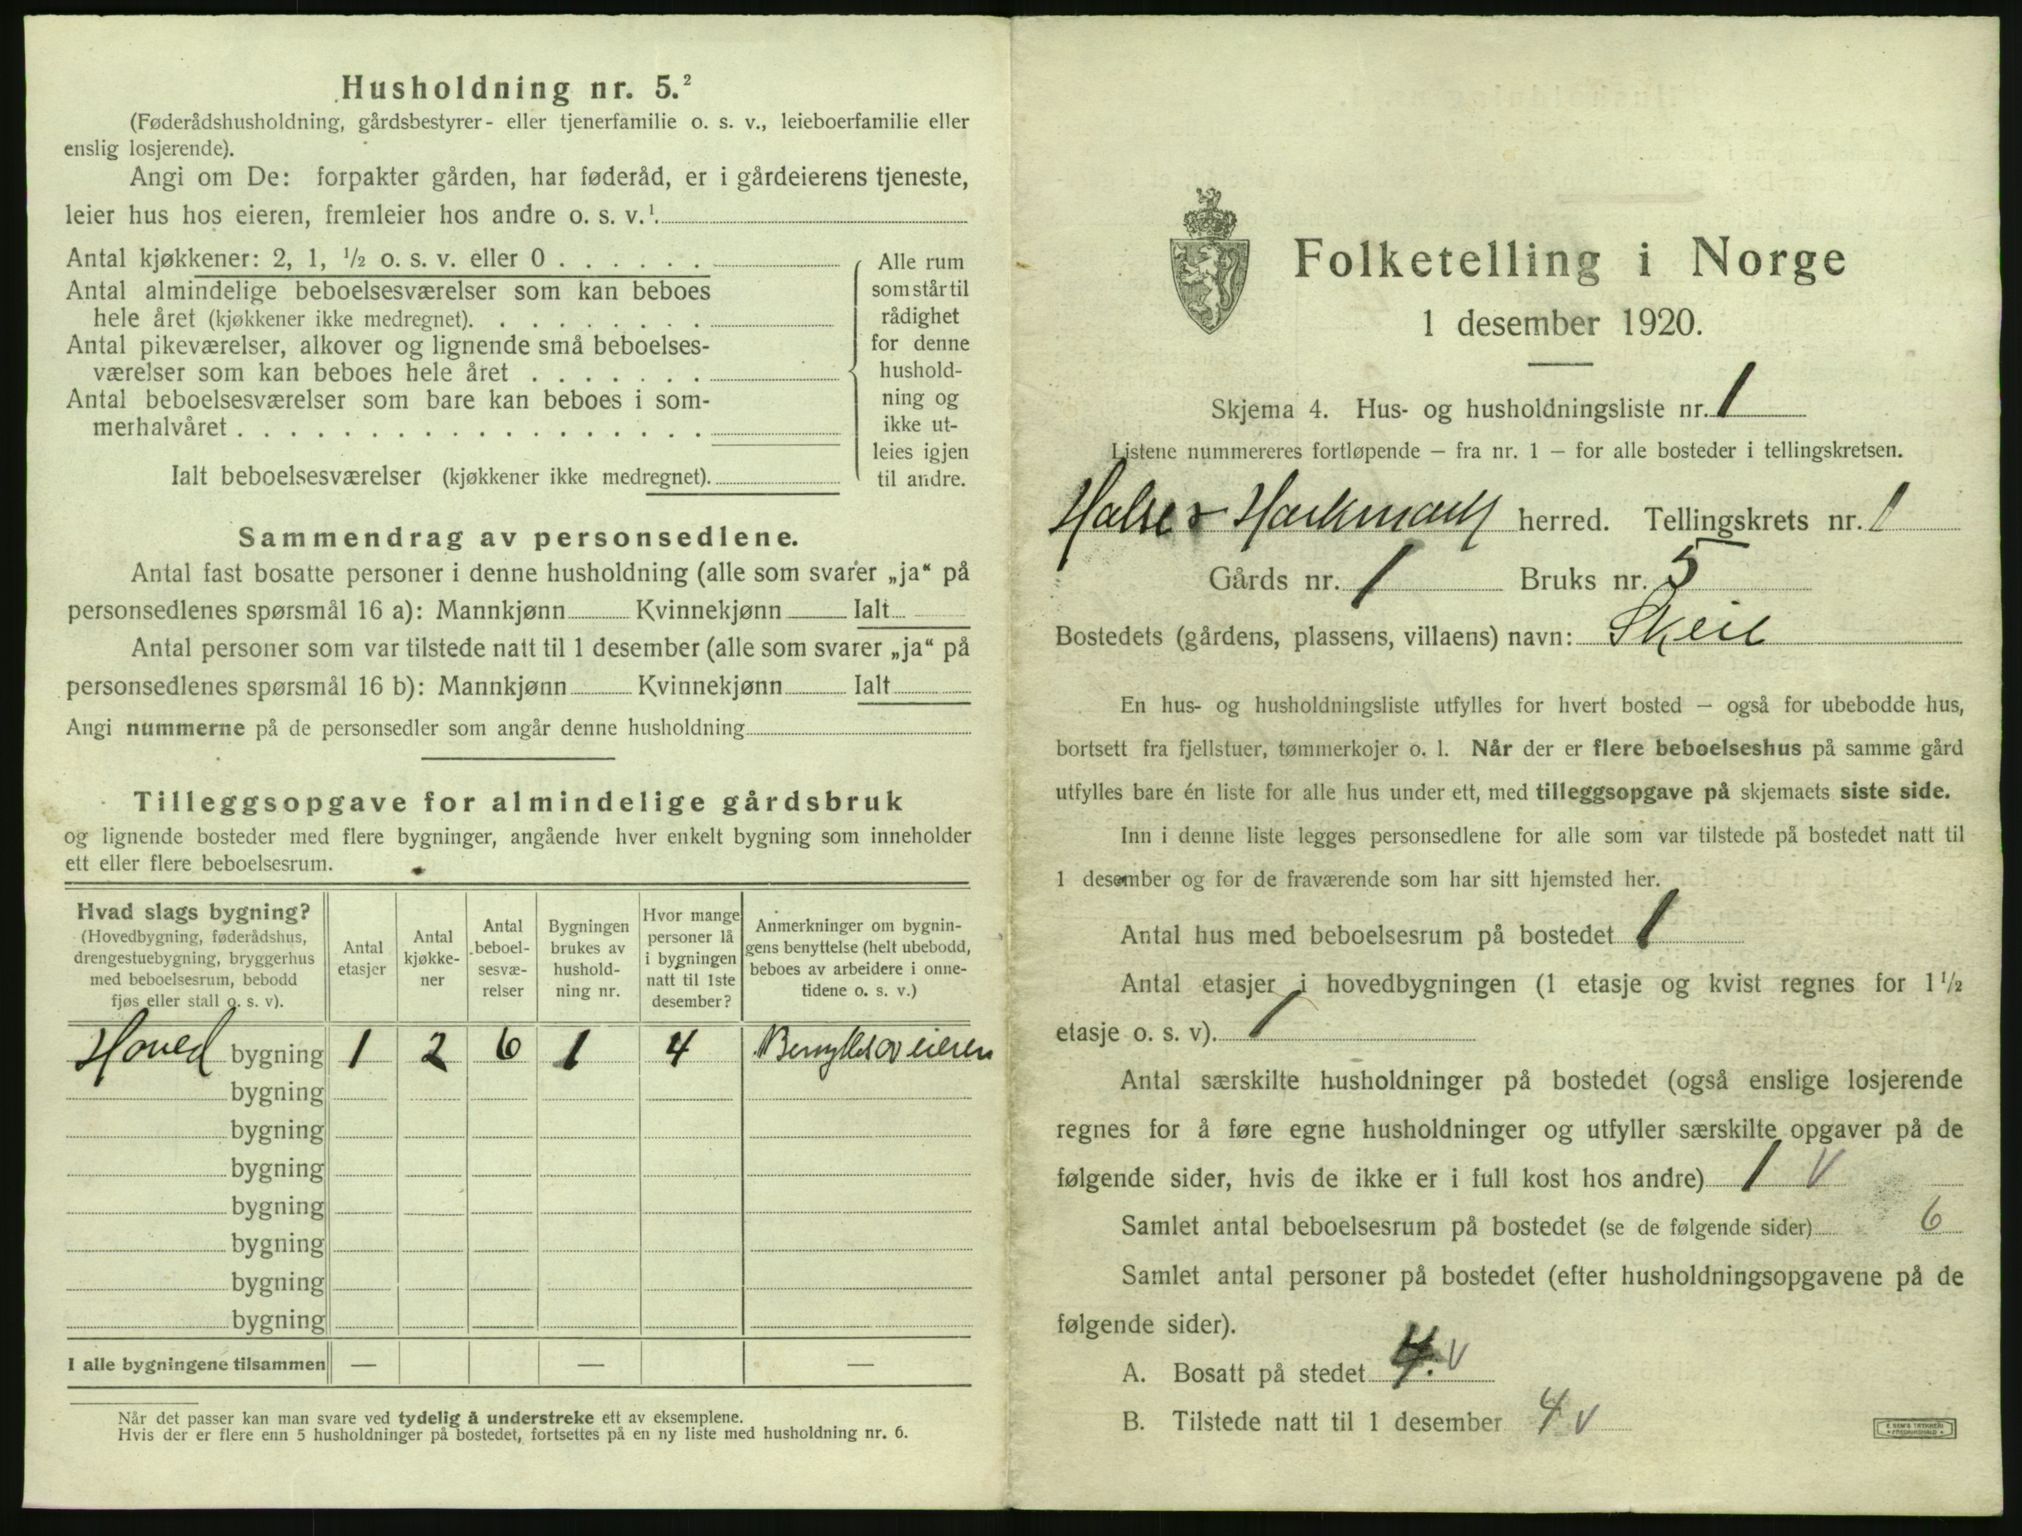 Husholdning nr. 5.²
(Føderådshusholdning, gårdsbestyrer- eller tjenerfamilie o. s. v., leieboerfamilie eller
enslig losjerende).
Angi om De: forpakter gården, har føderåd, er i gårdeierens tjeneste,
leier hus hos eieren, fremleier hos andre o. s. v.¹
Antal kjøkkener: 2, 1, ½ o. s. v. eller 0 . . . . . .
Antal almindelige beboelsesværelser som kan beboes
hele året (kjøkkener ikke medregnet). . . . . . . . .
Antal pikeværelser, alkover og lignende små beboelses-
værelser som kan beboes hele året . . . . . . .
Antal beboelsesværelser som bare kan beboes i som-
merhalvåret . . . . . . . . . . . . . . . . . .
Ialt beboelsesværelser (kjøkkener ikke medregnet).
Alle rum
som står til
rådighet
for denne
hushold-
ning og
ikke ut-
leies igjen
til andre.
Sammendrag av personsedlene.
Antal fast bosatte personer i denne husholdning (alle som svarer „ja“ på
personsedlenes spørsmål 16 a): Mannkjønn Kvinnekjønn Ialt
Antal personer som var tilstede natt til 1 desember (alle som svarer „ja“ på
personsedlenes spørsmål 16 b): Mannkjønn Kvinnekjønn Ialt
Angi nummerne på de personsedler som angår denne husholdning
Tilleggsopgave for almindelige gårdsbruk
og lignende bosteder med flere bygninger, angående hver enkelt bygning som inneholder
ett eller flere beboelsesrum.
Hvad slags bygning?
(Hovedbygning, føderådshus,
drengestuebygning, bryggerhus
med beboelsesrum, bebodd
fjøs eller stall o. s. v).
Antal
etasjer
Antal
kjøkke-
ner
Antal
beboel-
sesvæ-
relser
Bygningen
brukes av
hushold-
ning nr.
Hvor mange
personer lå
i bygningen
natt til 1ste
desember?
Anmerkninger om bygnin-
gens benyttelse (helt ubebodd,
beboes av arbeidere i onne-
tidene o. s. v.)
Hoved bygning 1 2 6 1 4 Benyttes av eieren
bygning
bygning
bygning
bygning
bygning
bygning
bygning
I alle bygningene tilsammen — — —
Når det passer kan man svare ved tydelig å understreke ett av eksemplene.
Hvis der er flere enn 5 husholdninger på bostedet, fortsettes på en ny liste med husholdning nr. 6.
Folketelling i Norge
1 desember 1920.
Skjema 4. Hus- og husholdningsliste nr. 1
Listene nummereres fortløpende – fra nr. 1 – for alle bosteder i tellingskretsen.
Halse & Harkmark herred. Tellingskrets nr. 1
Gårds nr. 1 Bruks nr. 5
Bostedets (gårdens, plassens, villaens) navn:
En hus- og husholdningsliste utfylles for hvert bosted – også for ubebodde hus,
bortsett fra fjellstuer, tømmerkojer o. l. Når der er flere beboelseshus på samme gård
utfylles bare én liste for alle hus under ett, med tilleggsopgave på skjemaets siste side.
Inn i denne liste legges personsedlene for alle som var tilstede på bostedet natt til
1 desember og for de fraværende som har sitt hjemsted her.
Antal hus med beboelsesrum på bostedet 1
Antal etasjer i hovedbygningen (1 etasje og kvist regnes for 1½
etasje o. s. v). 1
Antal særskilte husholdninger på bostedet (også enslige losjerende
regnes for å føre egne husholdninger og utfyller særskilte opgaver på de
følgende sider, hvis de ikke er i full kost hos andre) 1 v
Samlet antal beboelsesrum på bostedet (se de følgende sider) 6
Samlet antal personer på bostedet (efter husholdningsopgavene på de
følgende sider).
A. Bosatt på stedet 4. v
B. Tilstede natt til 1 desember 4 v